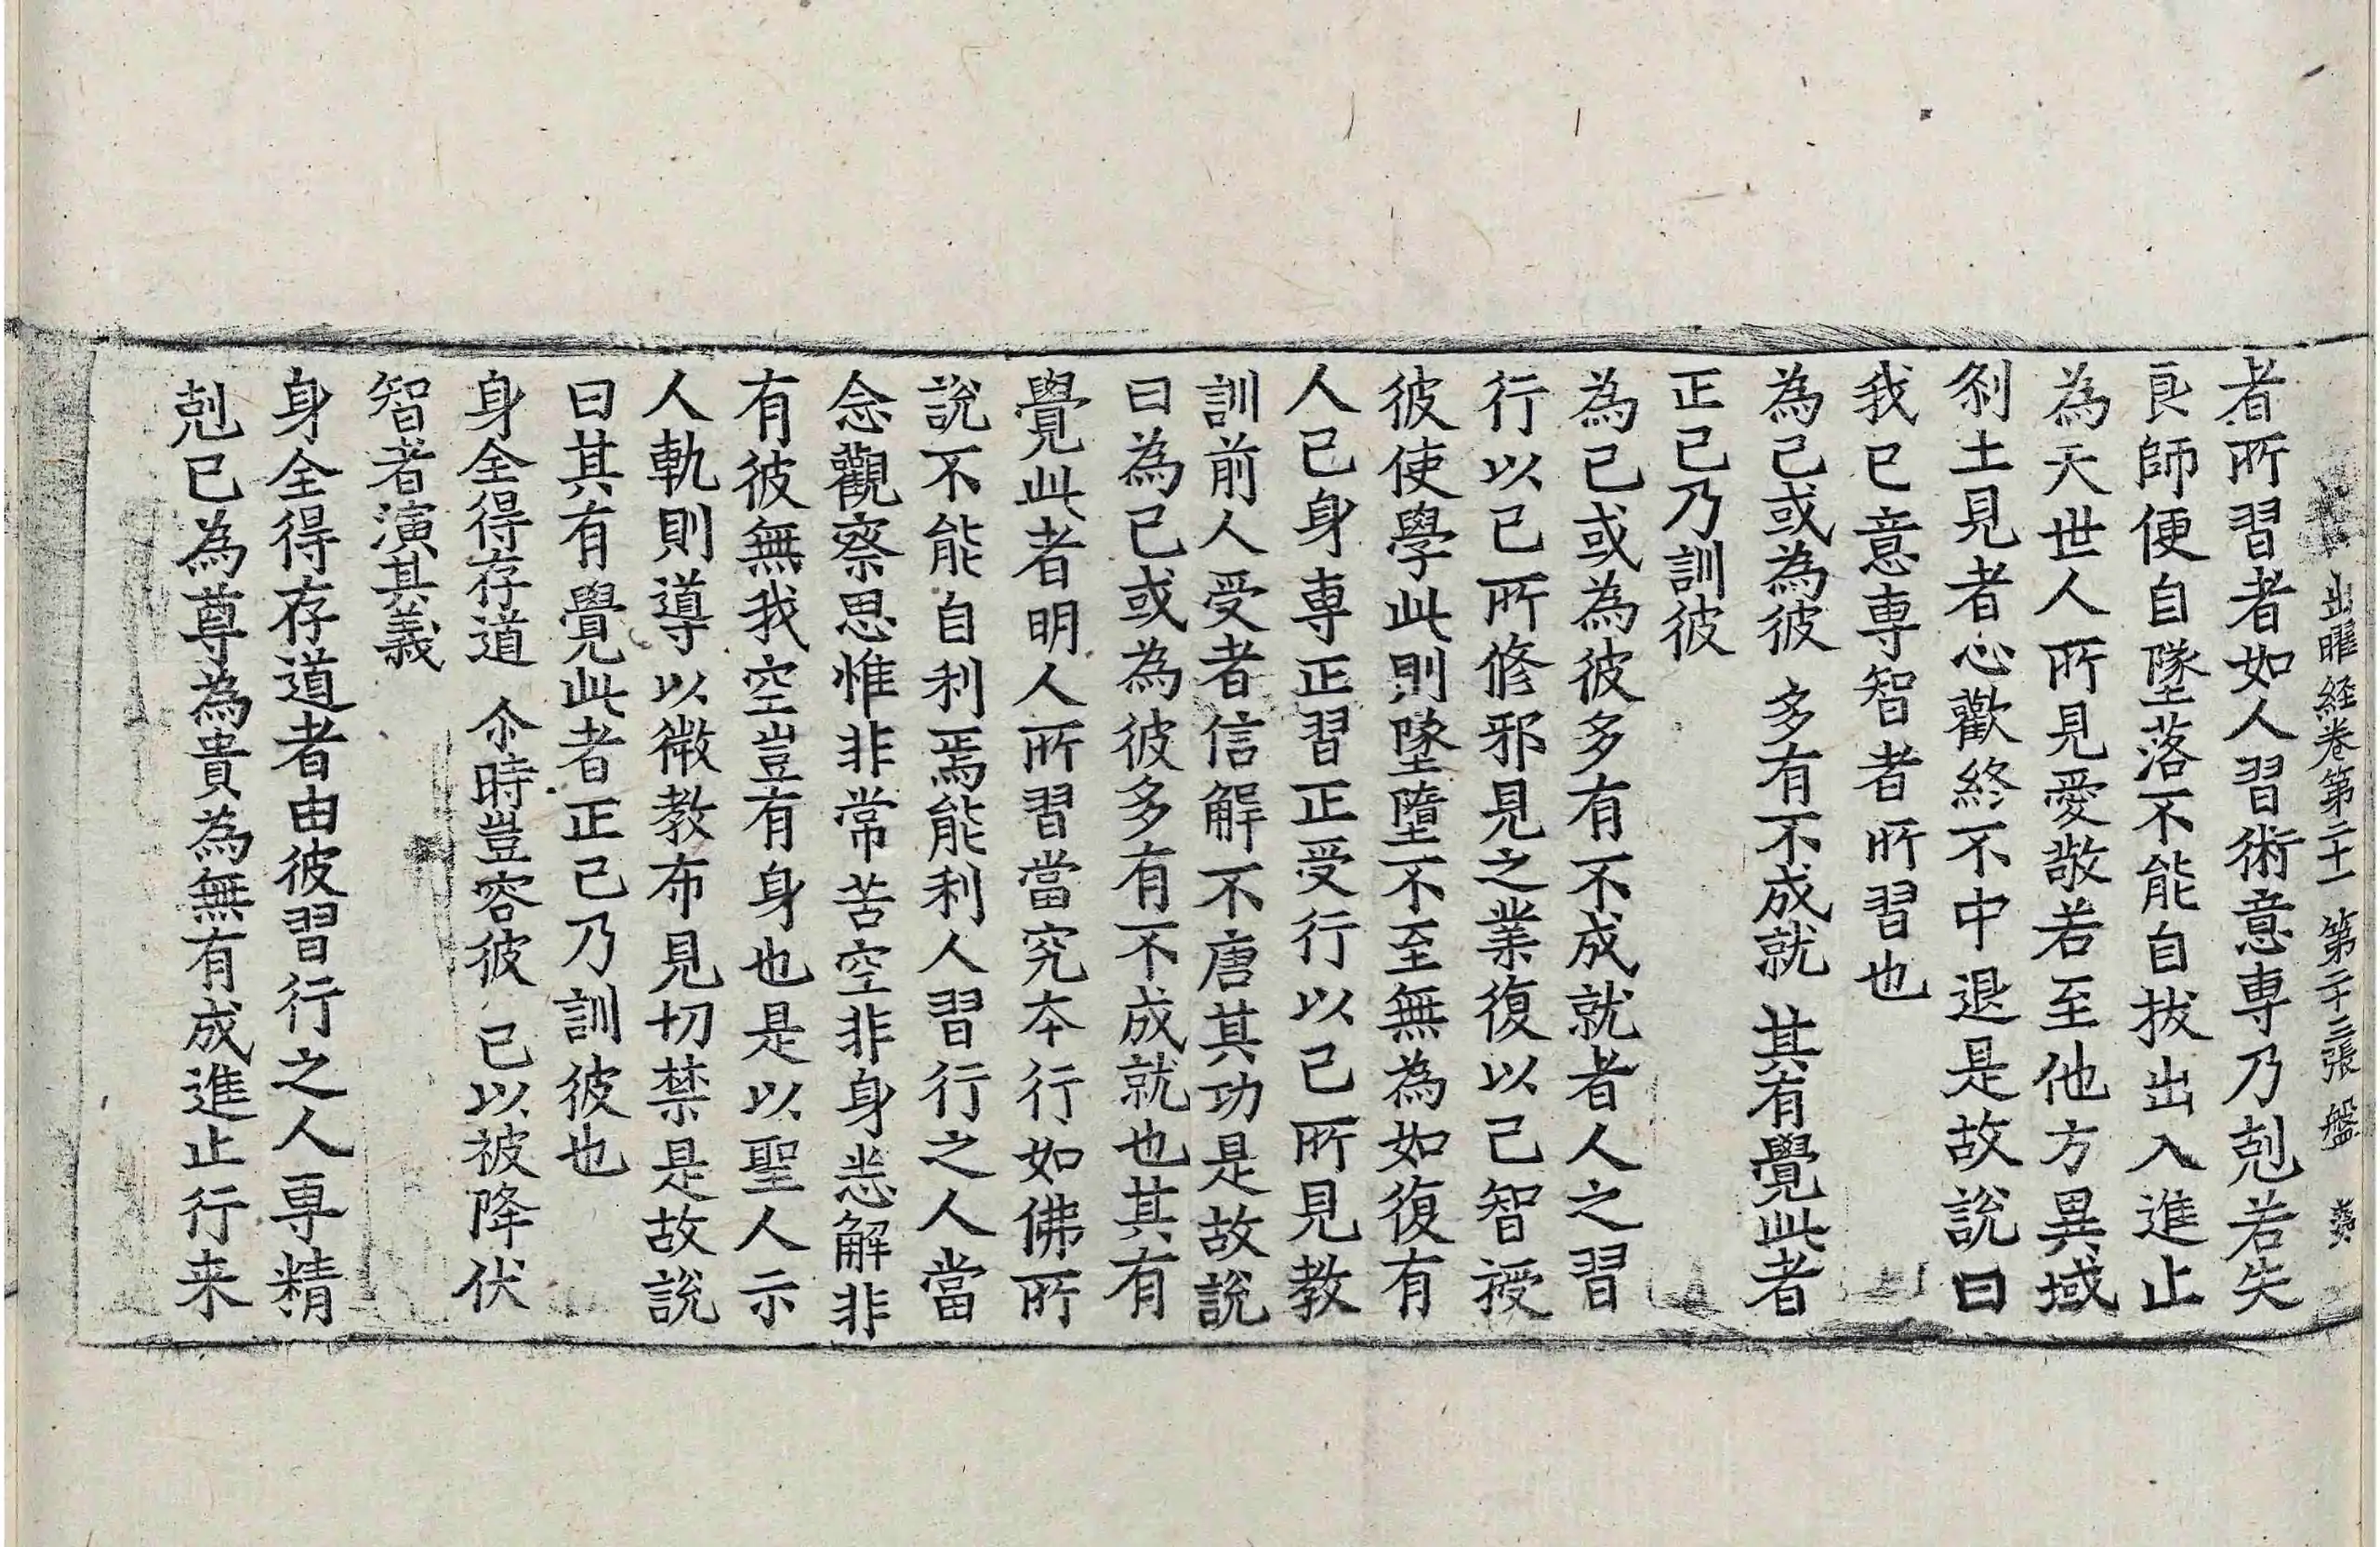 出曜経卷第二十一 第二十三張 盤
者所習者如人習術意専乃剋若失
良師便自墜落不能自拔出入進止
為天世人所見愛敬若至他方異域
刹土見者心歡終不中退是故說曰
我已意専智者所習也
為己或為彼 多有不成就 其有覺此者
正己乃訓彼
為己或為彼多有不成就者人之習
行以己所修邪見之業復以己智授
彼使學此則墜墮不至無為如復有
人已身専正習正受行以己所見教
訓前人受者信解不唐其功是故說
曰為己或為彼多有不成就也其有
覺此者明人所習當究夲行如佛所
說不能自利焉能利人習行之人當
念觀察思惟非常苦空非身悉解非
有彼無我空豈有身也是以聖人示
人軌則導以微教布見切禁是故說
曰其有覺此者正己乃訓彼也
身全得存道 尒時豈容彼 己以被降伏
智者演其義
身全得存道者由彼習行之人専精
剋己為尊為貴為無有成進止行来